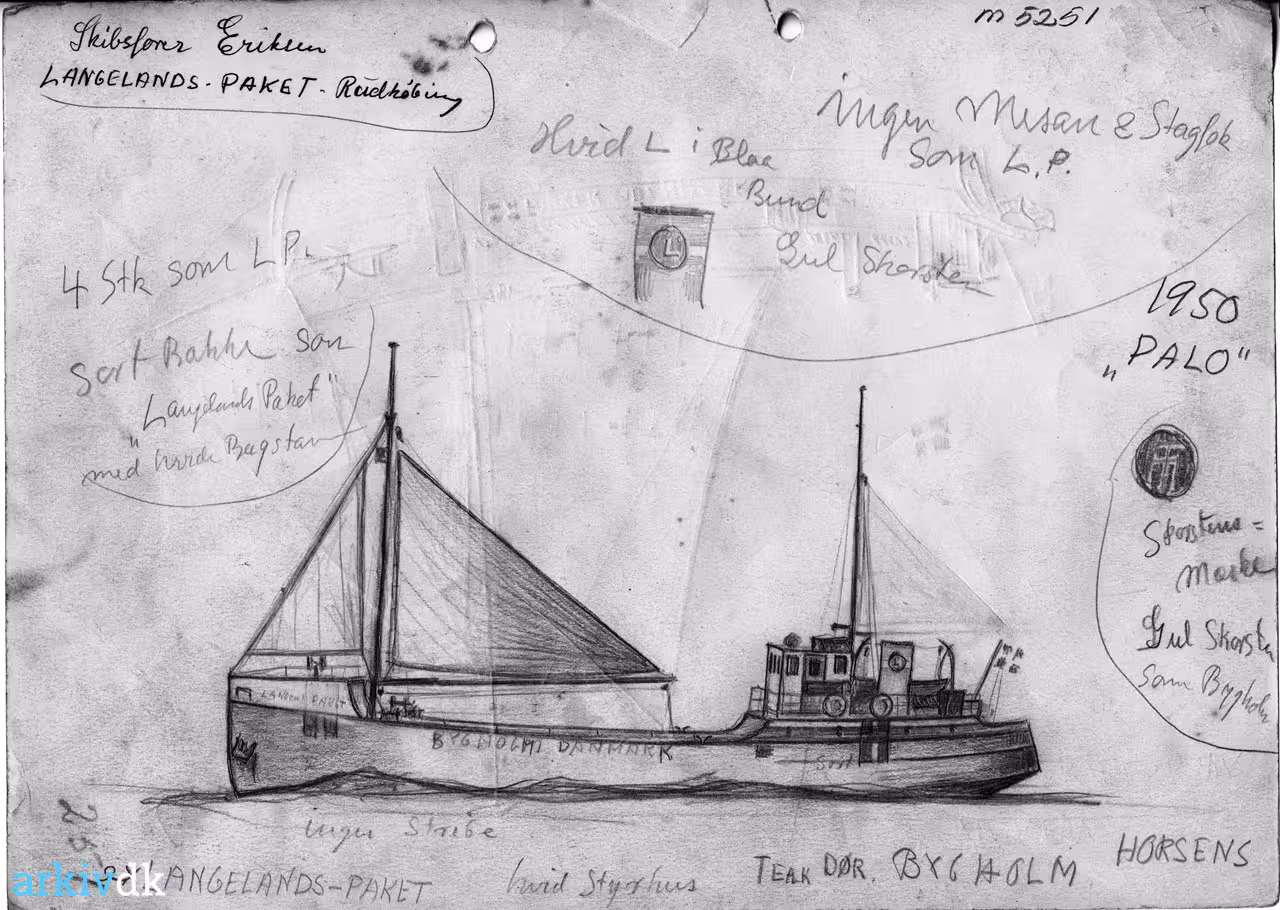 m 5251
Skibsfører Eriksen
LANGELANDS-PAKET-Rudkøbing
Hvid L i Blaa
Bund
Gul Skorsten
ingen Mesan & Stagfok
som L.P.
4 Stk som L.P.
Sort Bakke som
"Langelands Paket"
med hvide
1950
„PALO"
Skorstens=
Mærke
Gul Skorsten
Som Bygholm
L
L
LANGEL PAKET
BYGHOLM DANMARK
Sort
ingen Stribe
25
LANGELANDS-PAKET
hvid Styrhus
TEAK DØR.
BYGHOLM
HORSENS
arkivdk